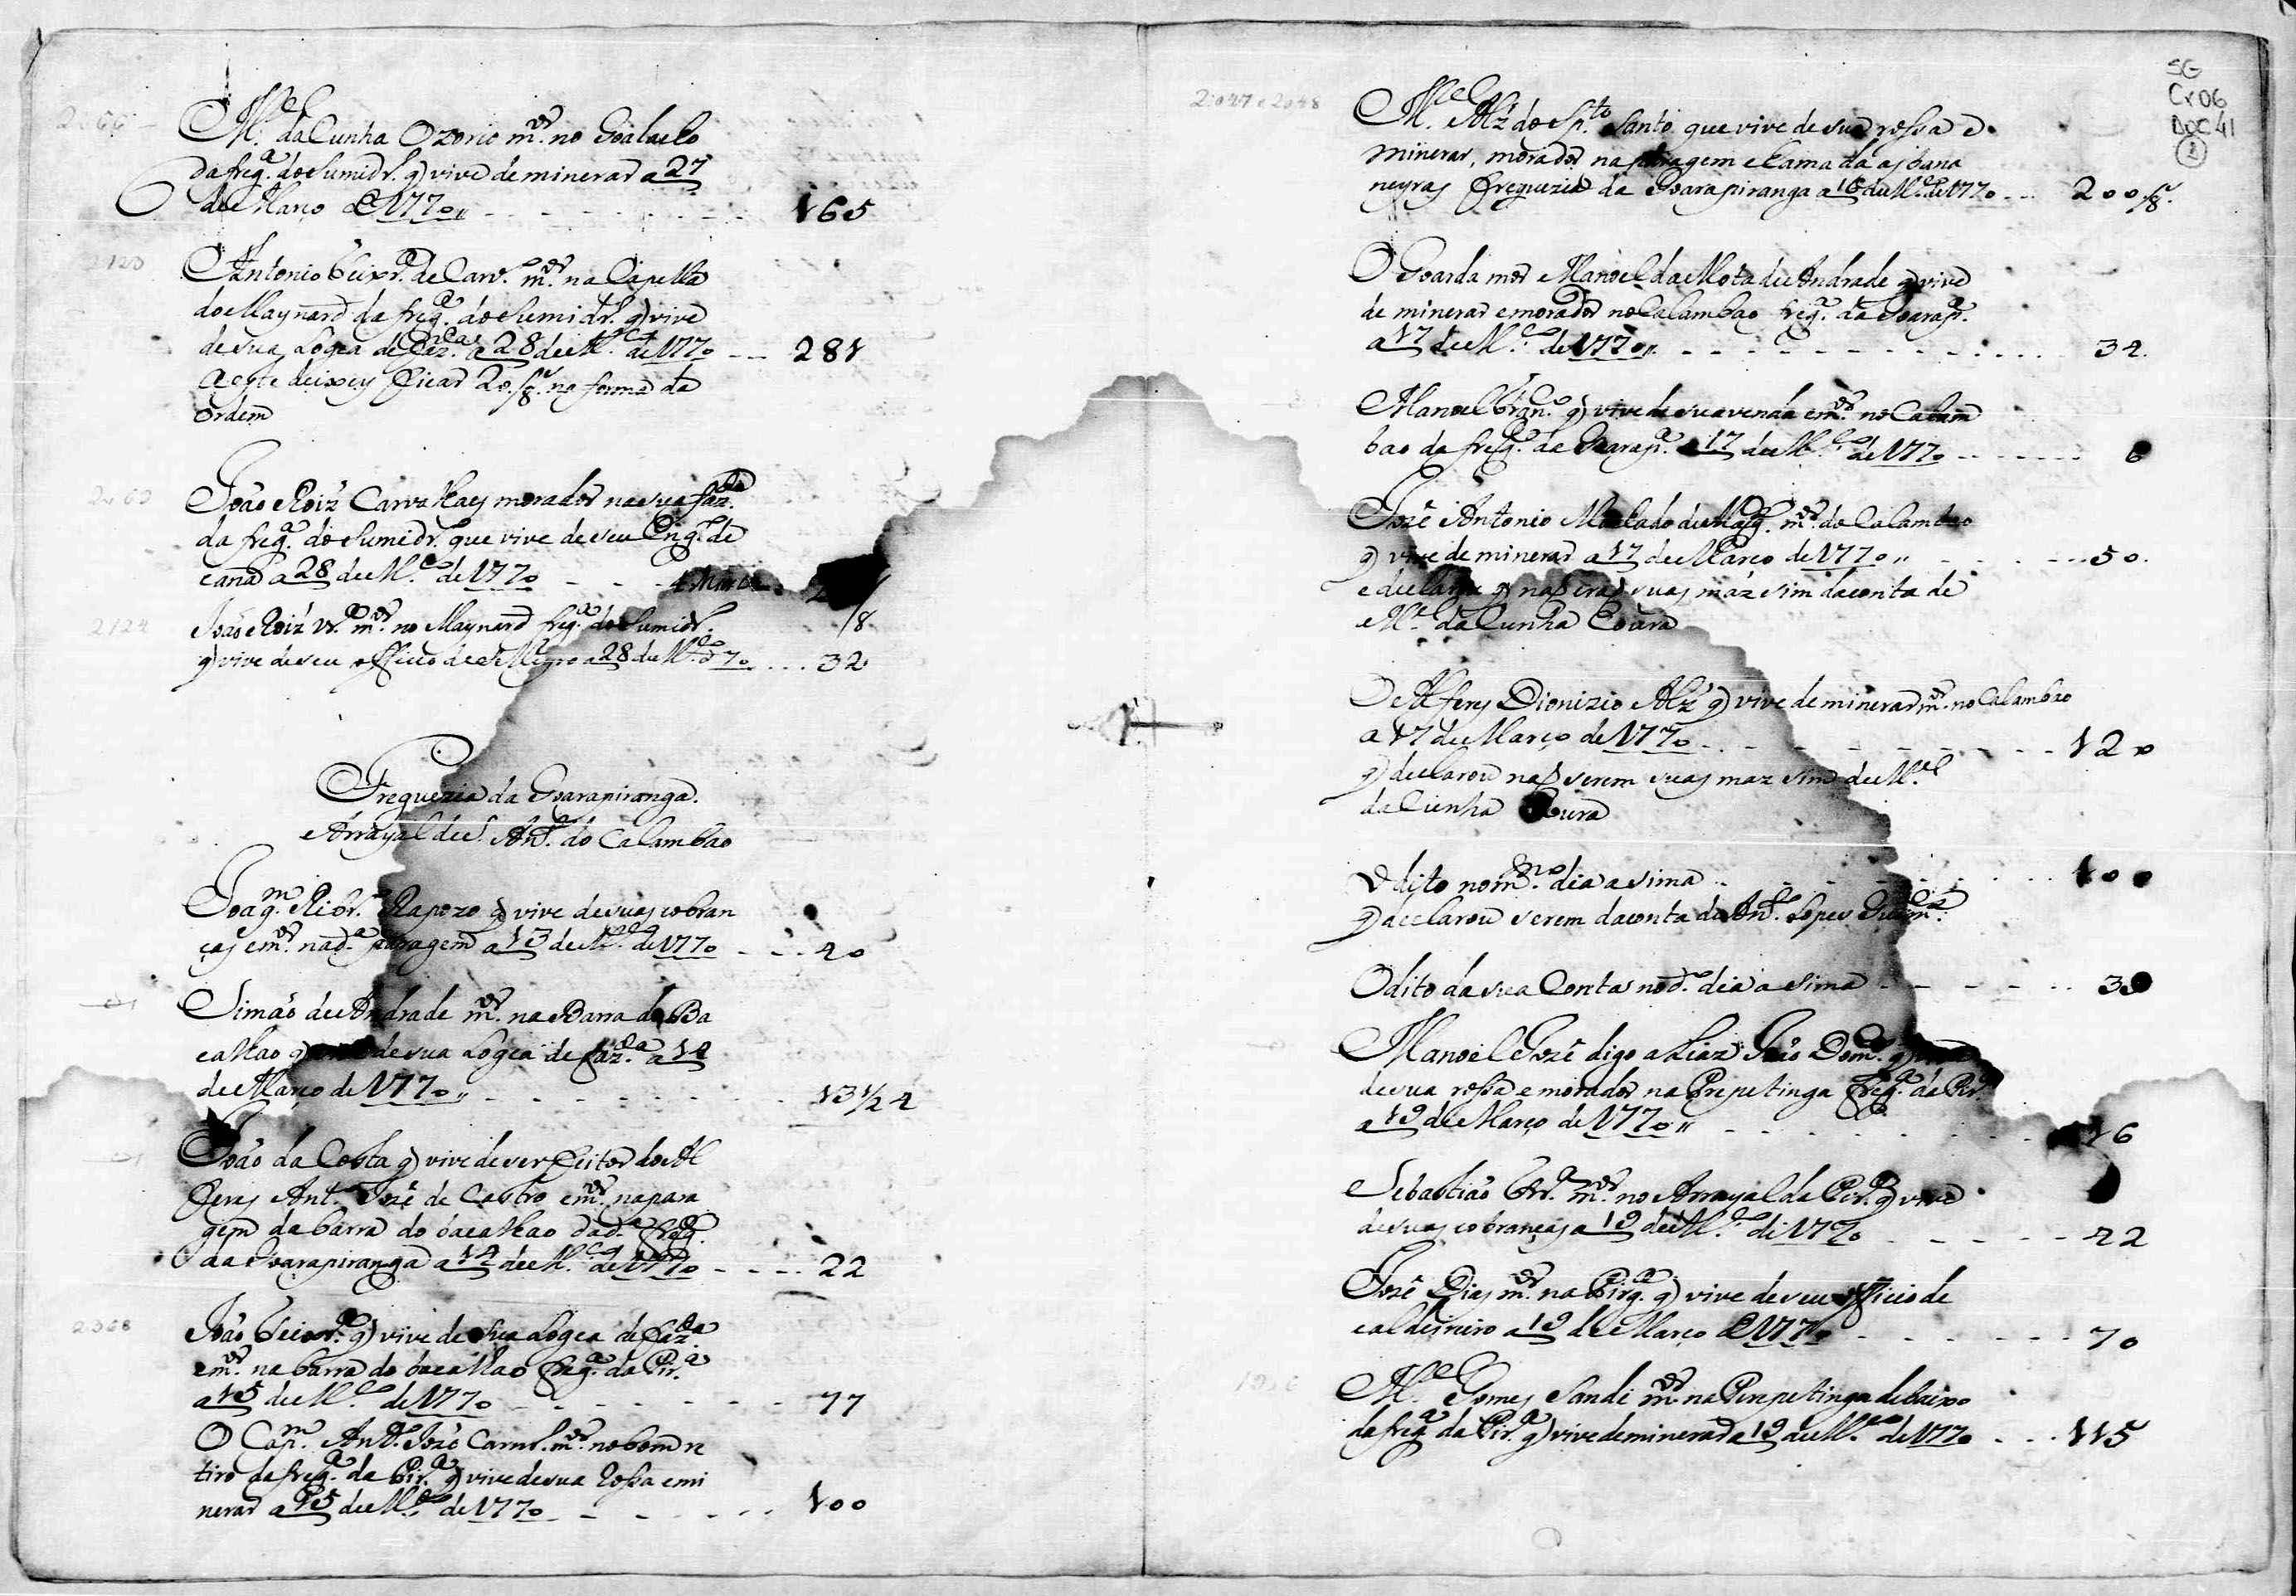 M.el da Cunha Ozorio m.or no Goalacho
da freg.a do Sumidr.o q vive de minerar a 27
de Março de 1770,, 165
Antonio Teixr.a de Carv.o m.or na Capella
do Maynard da freg.a do Sumidr.o q vive
de sua Logea de Faz.das a 28 de M.ço de 1770 281
a este deixey ficar 20/8.as na forma da
ordem
João Roiz Carvalhaes morador na sua faz.da
da freg.a do Sumidr.o que vive de seu Eng.o de
cana a 28 de M.ço de 1770
João Roiz Vr.a m.or no Maynard freg.a do Sumidr.o /8
q vive de seu officio de a 28 de M.ço de 70 32
Freguezia da Goarapiranga.
Arrayal de S. Ant.o do Calambao
Joaq.m Ribr.o Rapozo q vive de suas cobran
ças e m.or na d.a paragem a 13 de M.ço de 1770 40
Simão de Andrade m.or na Barra do Ba
calhao q vive de sua Logea de faz.da a 14
de Março de 1770,, 13 1/2 4
João da Costa q vive de ser feitor do Al
feres Ant.o José de Castro e m.or na para
gem da barra do bacalhao da d.a freg.a
da Goarapiranga a 14 de M.ço de 1770 22
2368
João Teixr.a q vive de sua Logea de faz.da
e m.or na barra do bacalhao freg.a da Pir.a
a 15 de M.ço de 1770 77
O Cap.m Ant.o José Carn.o m.or no bom re
tiro da freg.a da Pir.a q vive de sua Rossa e mi
nerar a 15 de M.ço de 1770 100
SG
Cx06
DOC 41
2
2:047 e 2048
M.el Alz do Sp.to Santo que vive de sua rossa e
minerar, morador na paragem chamada as bana
neyras freguezia da Goarapiranga a 16 de M.ço de 1770 200/8.as
O Goarda mor Manoel da Mota de Andrade q vive
de minerar e morador no Calambao freg.a da Goarap.a
a 17 de M.ço de 1770,, 34.
Manoel q vive de sua venda e m.or no Calam
bao da freg.a da Goarap.a a 17 de M.ço de 1770 6
José Antonio Machado de m.or do Calambao
q vive de minerar a 17 de Março de 1770,, 50.
e declara q não erão suas maz sim da conta de
M.el da Cunha Coura
O Alferes Dionizio Alz q vive de minerar m.or no Calambao
a 17 de Março de 1770 120
q declarou não serem suas maz sim de M.el
da Cunha Coura
O dito no m.mo dia asima 100
q declarou serem da conta de Ant.o Lopes Guim.es
O dito da sua Conta no d.o dia asima
Manoel José digo aliaz João Dom.es q vive
de sua rossa e morador na Prepetinga freg.a da Pir.a
a 19 de Março de 1770,, 16
Sebastião m.or no Arrayal da Pir.a q vive
de suas cobranças a 19 de M.ço de 1770 42
José Dias m.or na Pirg.a q vive de seu officio de
caldeireiro a 19 de Março de 1770 70
M.el Gomes Sande m.or na Pirapetinga de baixo
da freg.a da Pir.a q vive de minerar a 19 de M.ço de 1770 115